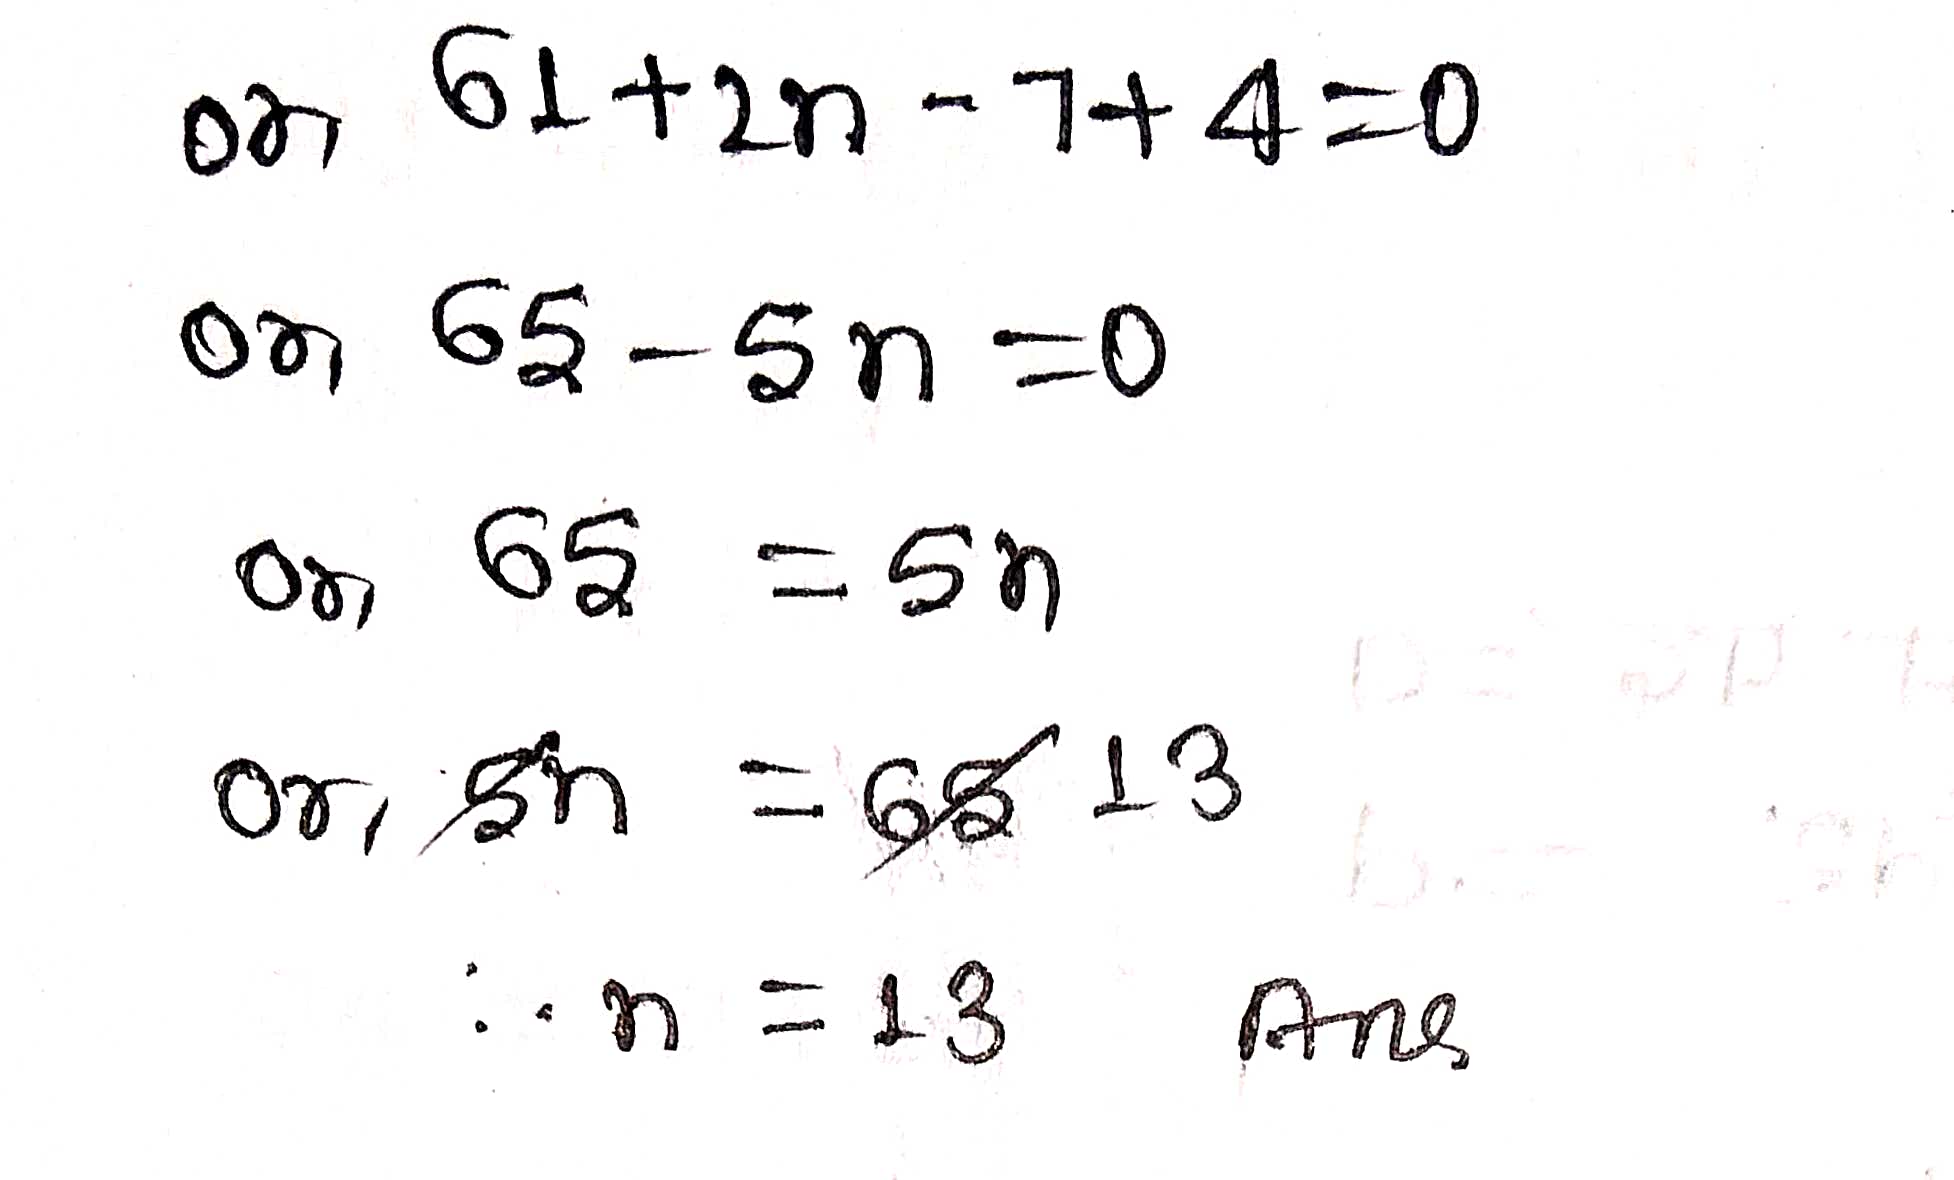 or 61 + 2n - 7 + 4 = 0
or 65 - 5n = 0
or 65 = 5n
or, 5n = 65 13
∴ n = 13 Ans